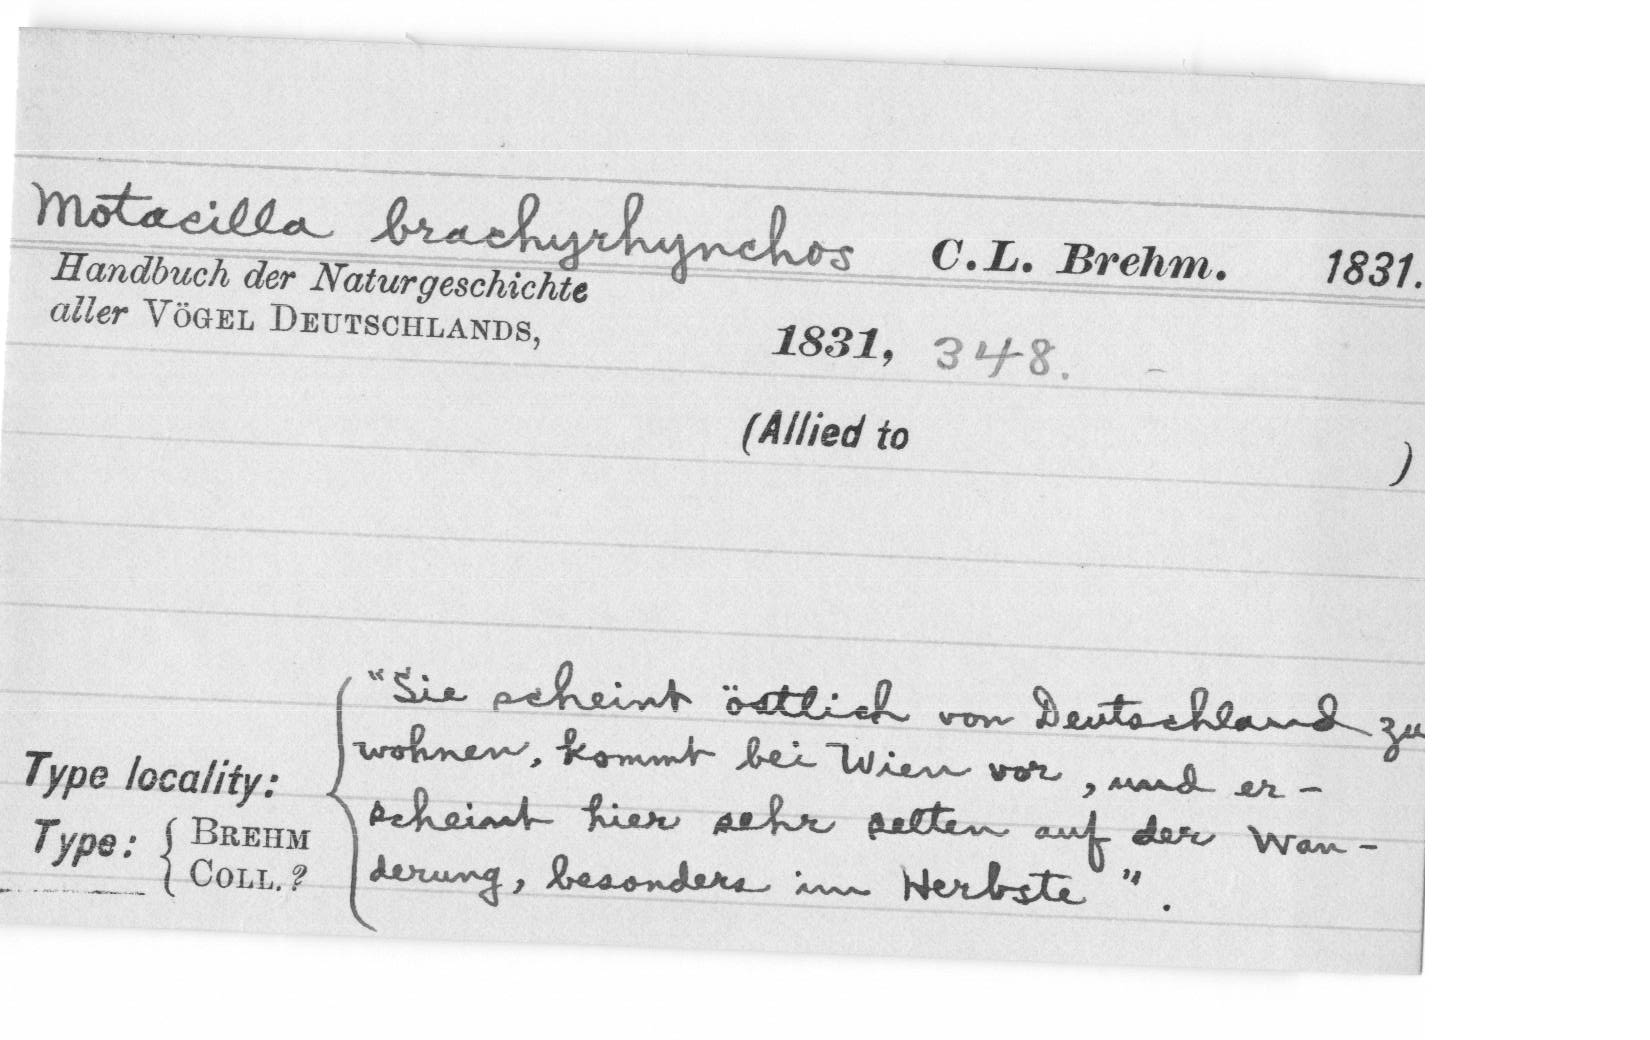 Motacilla brachyrhynchos C.L. Brehm. 1831.
Handbuch der Naturgeschichte
aller VÖGEL DEUTSCHLANDS, 1831, 348.
(Allied to )
"Sie scheint östlich von Deutschland zu
wohnen, kommt bei Wien vor, und er-
Type locality:
scheint hier sehr selten auf der Wan-
Type: { BREHM
COLL. ?
derung, besonders im Herbste".